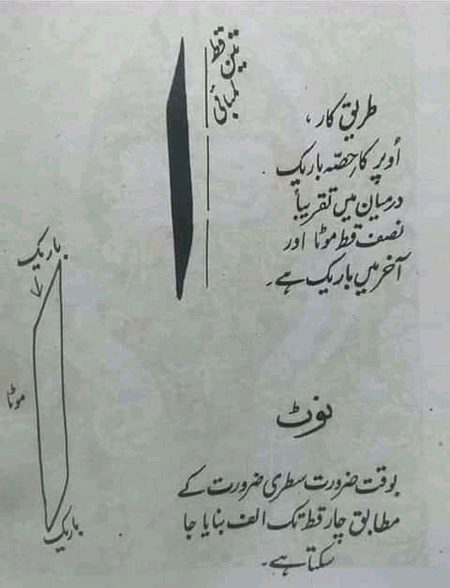 تین قط
لمبائی
طریق کار،
اُوپر کا حصّہ باریک
درمیان میں تقریباً
نصف قط موٹا اور
آخر میں باریک ہے۔
باریک
موٹا
باریک
نوٹ
بوقت ضرورت سطری ضرورت کے
مطابق چار قط تک الف بنایا جا
سکتا ہے۔